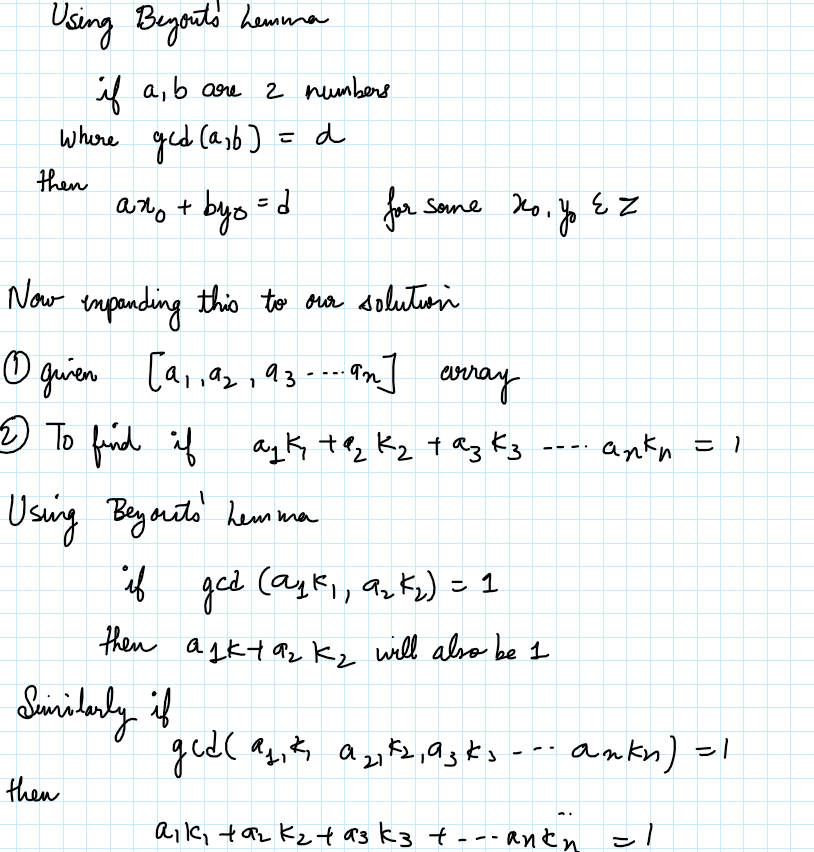 Using Bezouts' Lemma
if a, b are 2 numbers
where gcd(a,b) = d
then
ax₀ + by₀ = d for some x₀, y₀ ε Z
Now expanding this to our solution
① given [a₁, a₂, a₃ ---- aₙ] array
② To find if a₁k₁ + a₂k₂ + a₃k₃ ---- aₙkₙ = 1
Using Bezouts' Lemma
if gcd (a₁k₁, a₂k₂) = 1
then a₁k + a₂k₂ will also be 1
Similarly if
gcd( a₁,k₁ a₂,k₂, a₃k₃ --- aₙkₙ) = 1
then
a₁k₁ + a₂k₂ + a₃k₃ + --- aₙkₙ = 1